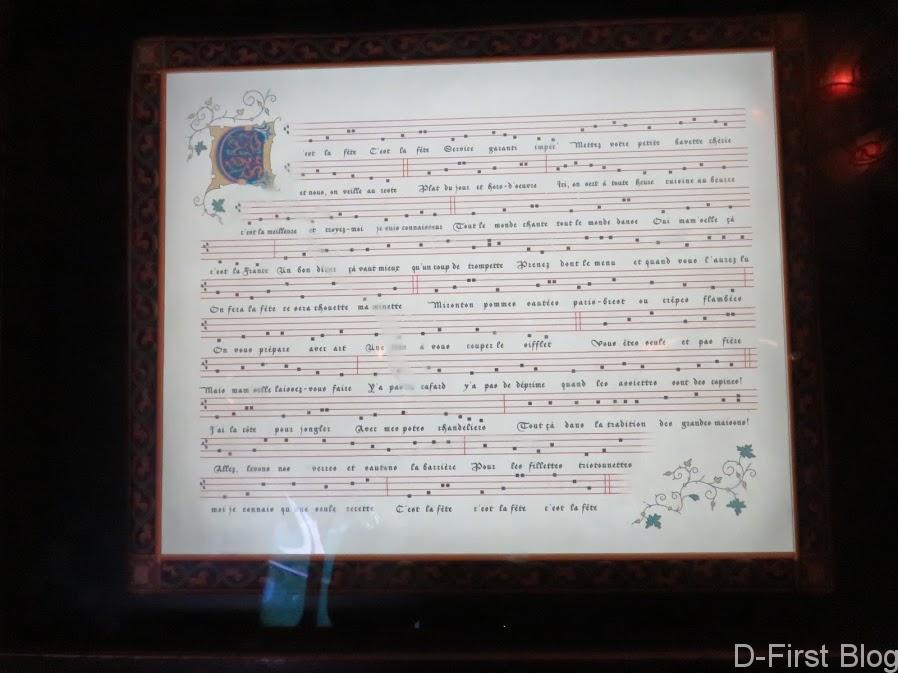 C'est la fête C'est la fête Service garanti impec' Mettez votre petite bavette chérie
et nous, on veille au reste Plat du jour et hors-d'oeuvre Ici, on sert à toute heure cuisine au beurre
c'est la meilleure et croyez-moi je suis connaisseur Tout le monde chante tout le monde danse Oui mam'selle çà
c'est la France Un bon dîner çà vaut mieux qu'un coup de trompette Prenez donc le menu et quand vous l'aurez lu
On fera la fête ce sera chouette ma minette Mironton pommes sautées paris-brest ou crêpes flambées
On vous prépare avec art Une à vous couper le sifflet Vous êtes seule et pas fière
Mais mam'selle laissez-vous faire Y'a pas cafard y'a pas de déprime quand les assiettes sont des copines!
J'ai la côte pour jongler Avec mes potes chandeliers Tout çà dans la tradition des grandes maisons!
Allez, levons nos verres et sautons la barrière Pour les fillettes tristounettes
moi je connais qu'une seule recette C'est la fête c'est la fête c'est la fête
D-First Blog